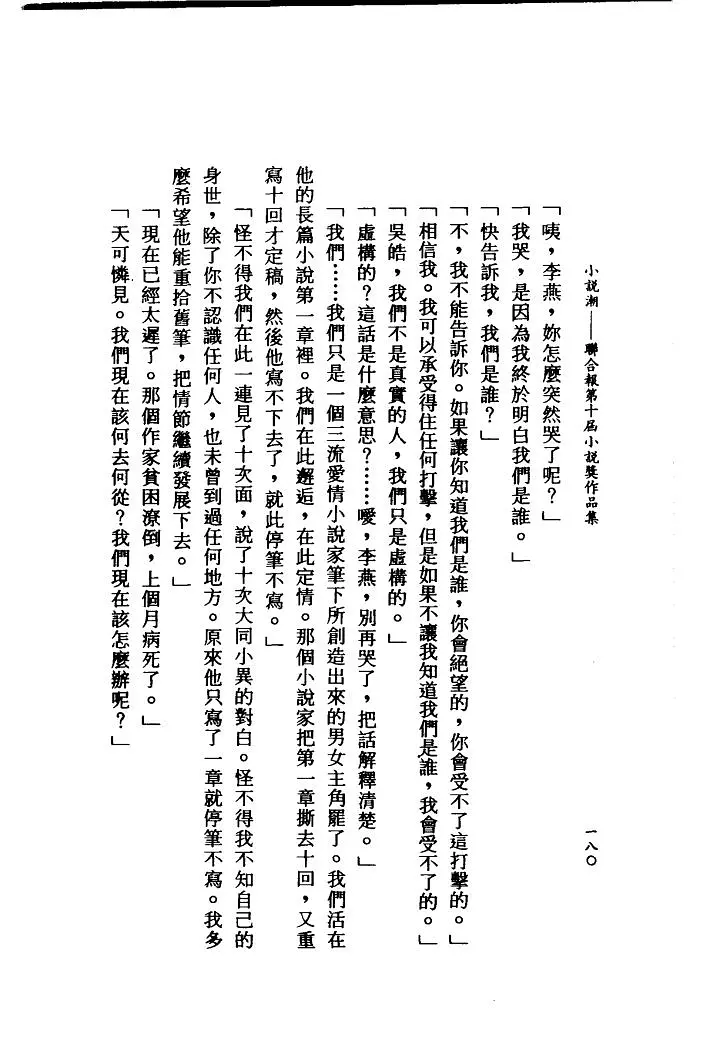 小說潮──聯合報第十屆小說獎作品集
一八〇
「咦，李燕，妳怎麼突然哭了呢？」
「我哭，是因為我終於明白我們是誰。」
「快告訴我，我們是誰？」
「不，我不能告訴你。如果讓你知道我們是誰，你會絕望的，你會受不了這打擊的。」
「相信我。我可以承受得住任何打擊，但是如果不讓我知道我們是誰，我會受不了的。」
「吳皓，我們不是真實的人，我們只是虛構的。」
「虛構的？這話是什麼意思？……噯，李燕，別再哭了，把話解釋清楚。」
「我們……我們只是一個三流愛情小說家筆下所創造出來的男女主角罷了。我們活在
他的長篇小說第一章裡。我們在此邂逅，在此定情。那個小說家把第一章撕去十回，又重
寫十回才定稿，然後他寫不下去了，就此停筆不寫。」
「怪不得我們在此一連見了十次面，說了十次大同小異的對白。怪不得我不知自己的
身世，除了你不認識任何人，也未曾到過任何地方。原來他只寫了一章就停筆不寫。我多
麼希望他能重拾舊筆，把情節繼續發展下去。」
「現在已經太遲了。那個作家貧困潦倒，上個月病死了。」
「天可憐見。我們現在該何去何從？我們現在該怎麼辦呢？」